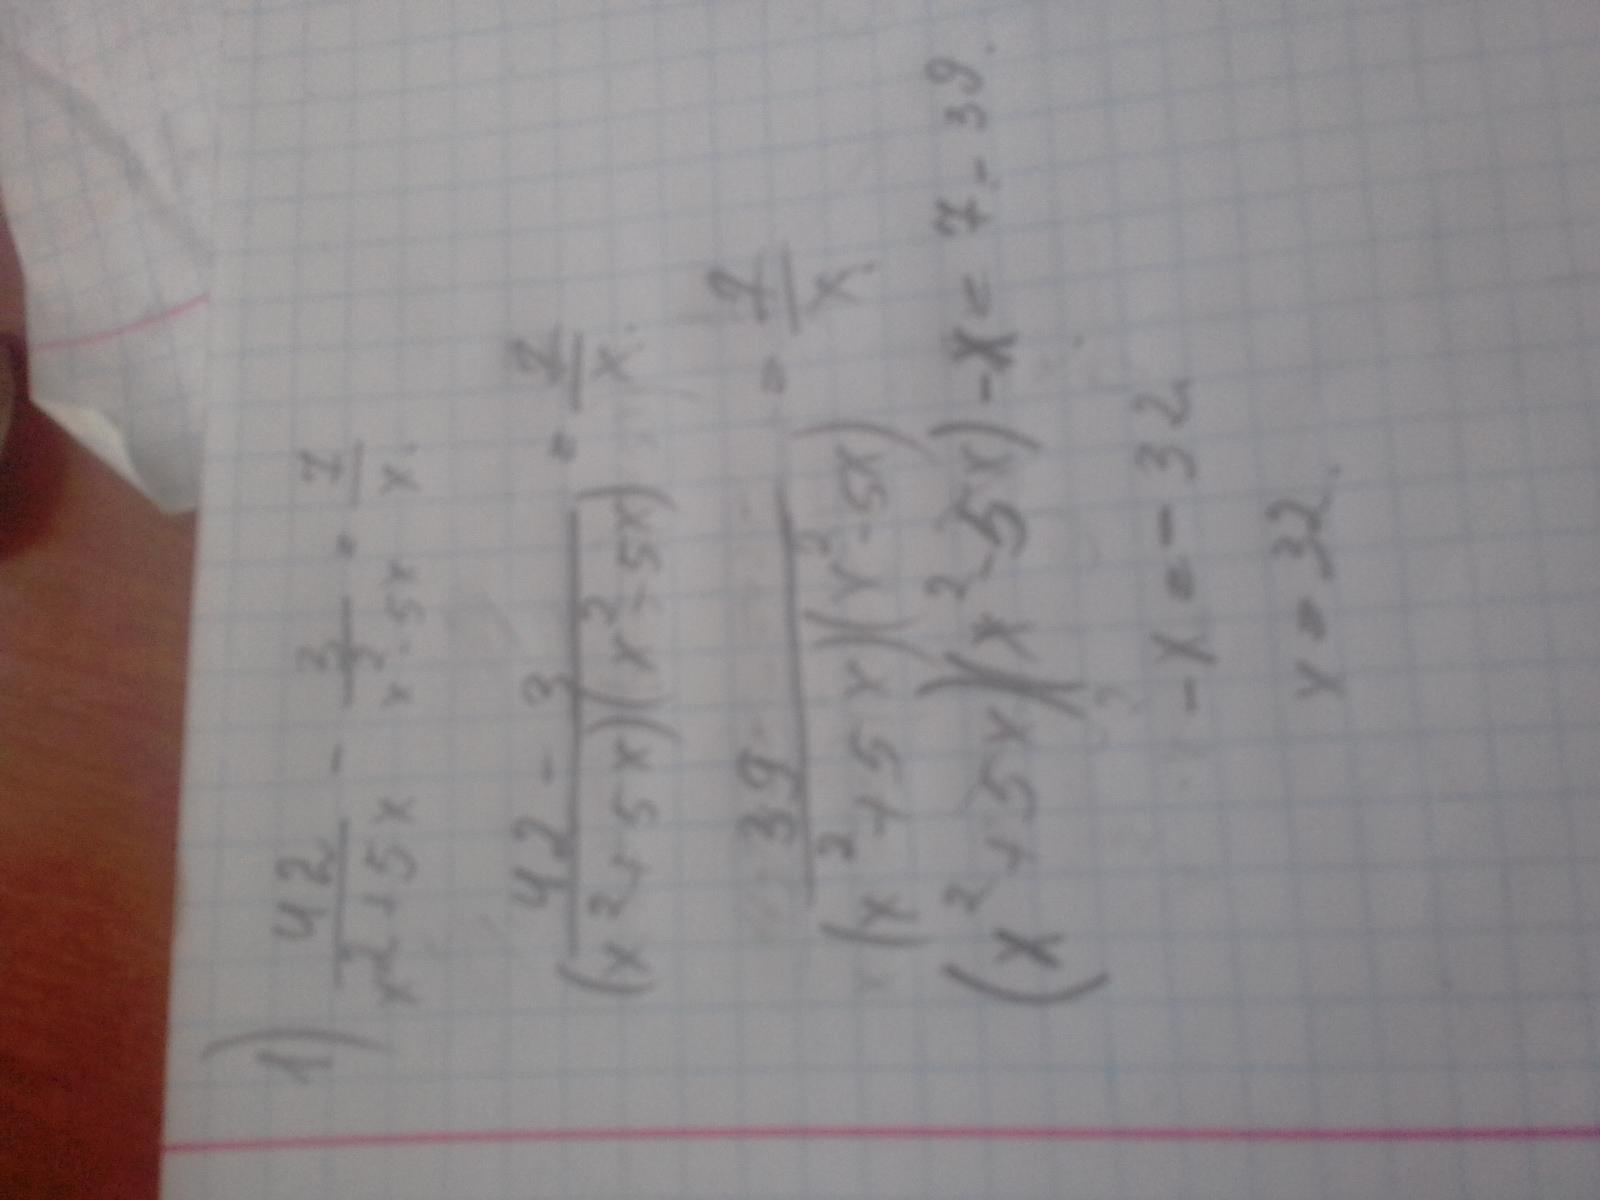 1) 42/(x²+5x) - 3/(x²-5x) = 7/x.
42-3/((x²+5x)(x²-5x)) = 7/x.
39/((x²+5x)(x²-5x)) = 7/x.
(x²+5x)(x²-5x)-x=7-39.
-x=-32
x=32.